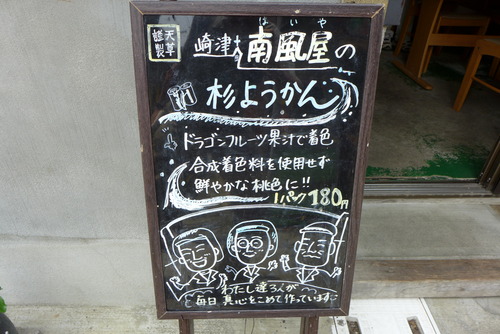 天草
謹製
崎津 南風屋の
はいや
杉ようかん
ドラゴンフルーツ果汁で着色
合成着色料を使用せず
鮮やかな桃色に!!
1パック 180円
わたし達3人が
毎日 真心をこめて作っています